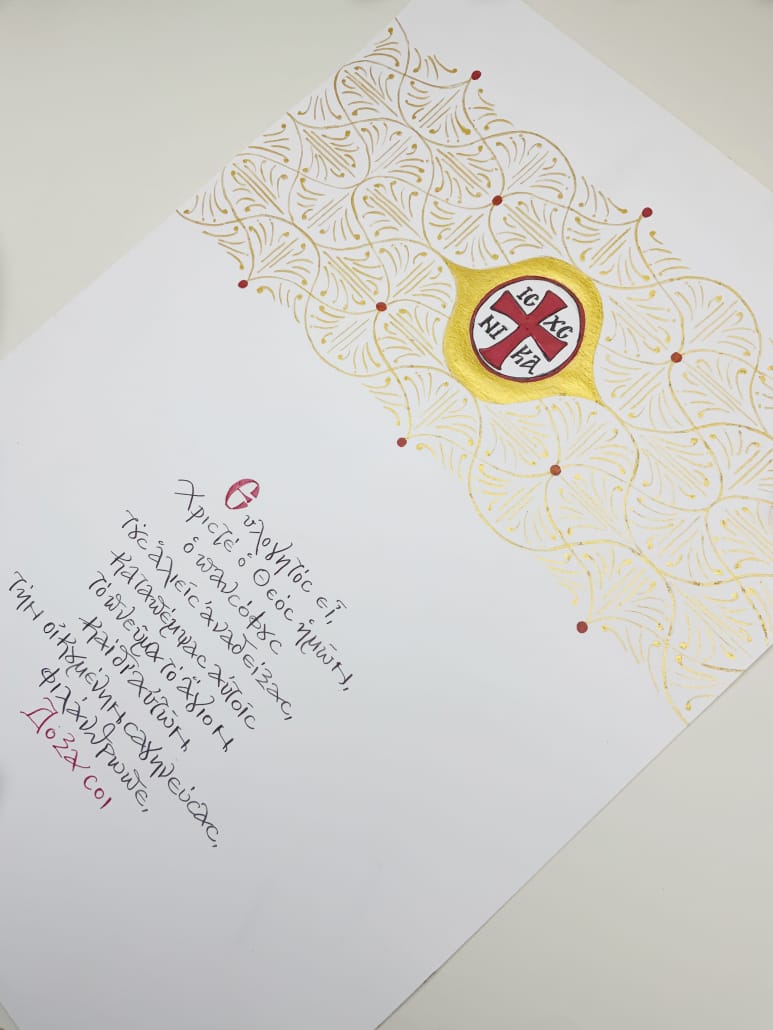 IC XC
NI KA
Εὐλογητός εἶ,
Χριστέ ὁ Θεός ἡμῶν,
ὁ πανσόφους
τούς ἁλιεῖς ἀναδείξας,
καταπέμψας αὐτοῖς
τό πνεῦμα τό ἅγιον,
καί δι' αὐτῶν
τήν οἰκουμένην σαγηνεύσας,
φιλάνθρωπε,
Δόξα σοι